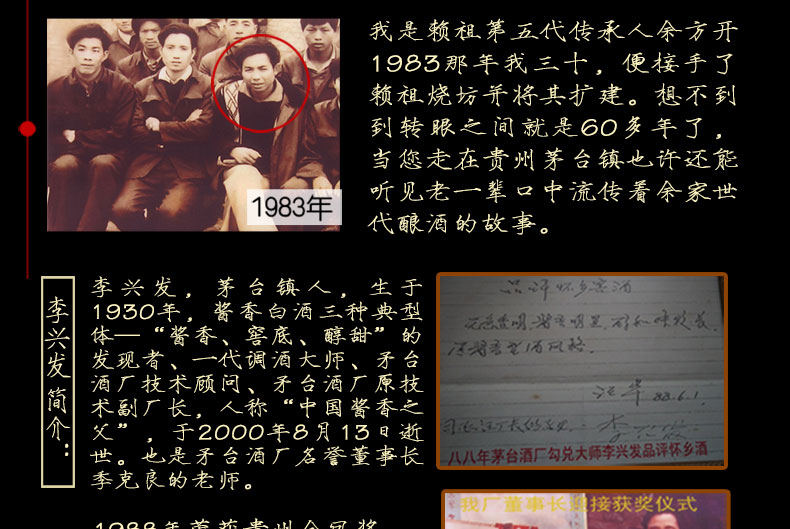 我是赖祖第五代传承人余方开
1983那年我三十，便接手了
赖祖烧坊并将其扩建。想不到
到转眼之间就是60多年了，
当您走在贵州茅台镇也许还能
听见老一辈口中流传着余家世
代酿酒的故事。
1983年
李兴发简介：
李兴发，茅台镇人，生于
1930年，酱香白酒三种典型
体—“酱香、窖底、醇甜”的
发现者、一代调酒大师、矛台
酒厂技术顾问、矛台酒厂原技
术副厂长，人称“中国酱香之
父”，于2000年8月13日逝
世。也是矛台酒厂名誉董事长
季克良的老师。
品评怀乡窖酒
88.6.1.
八八年茅台酒厂勾兑大师李兴发品评怀乡酒
我厂董事长迎接获奖仪式